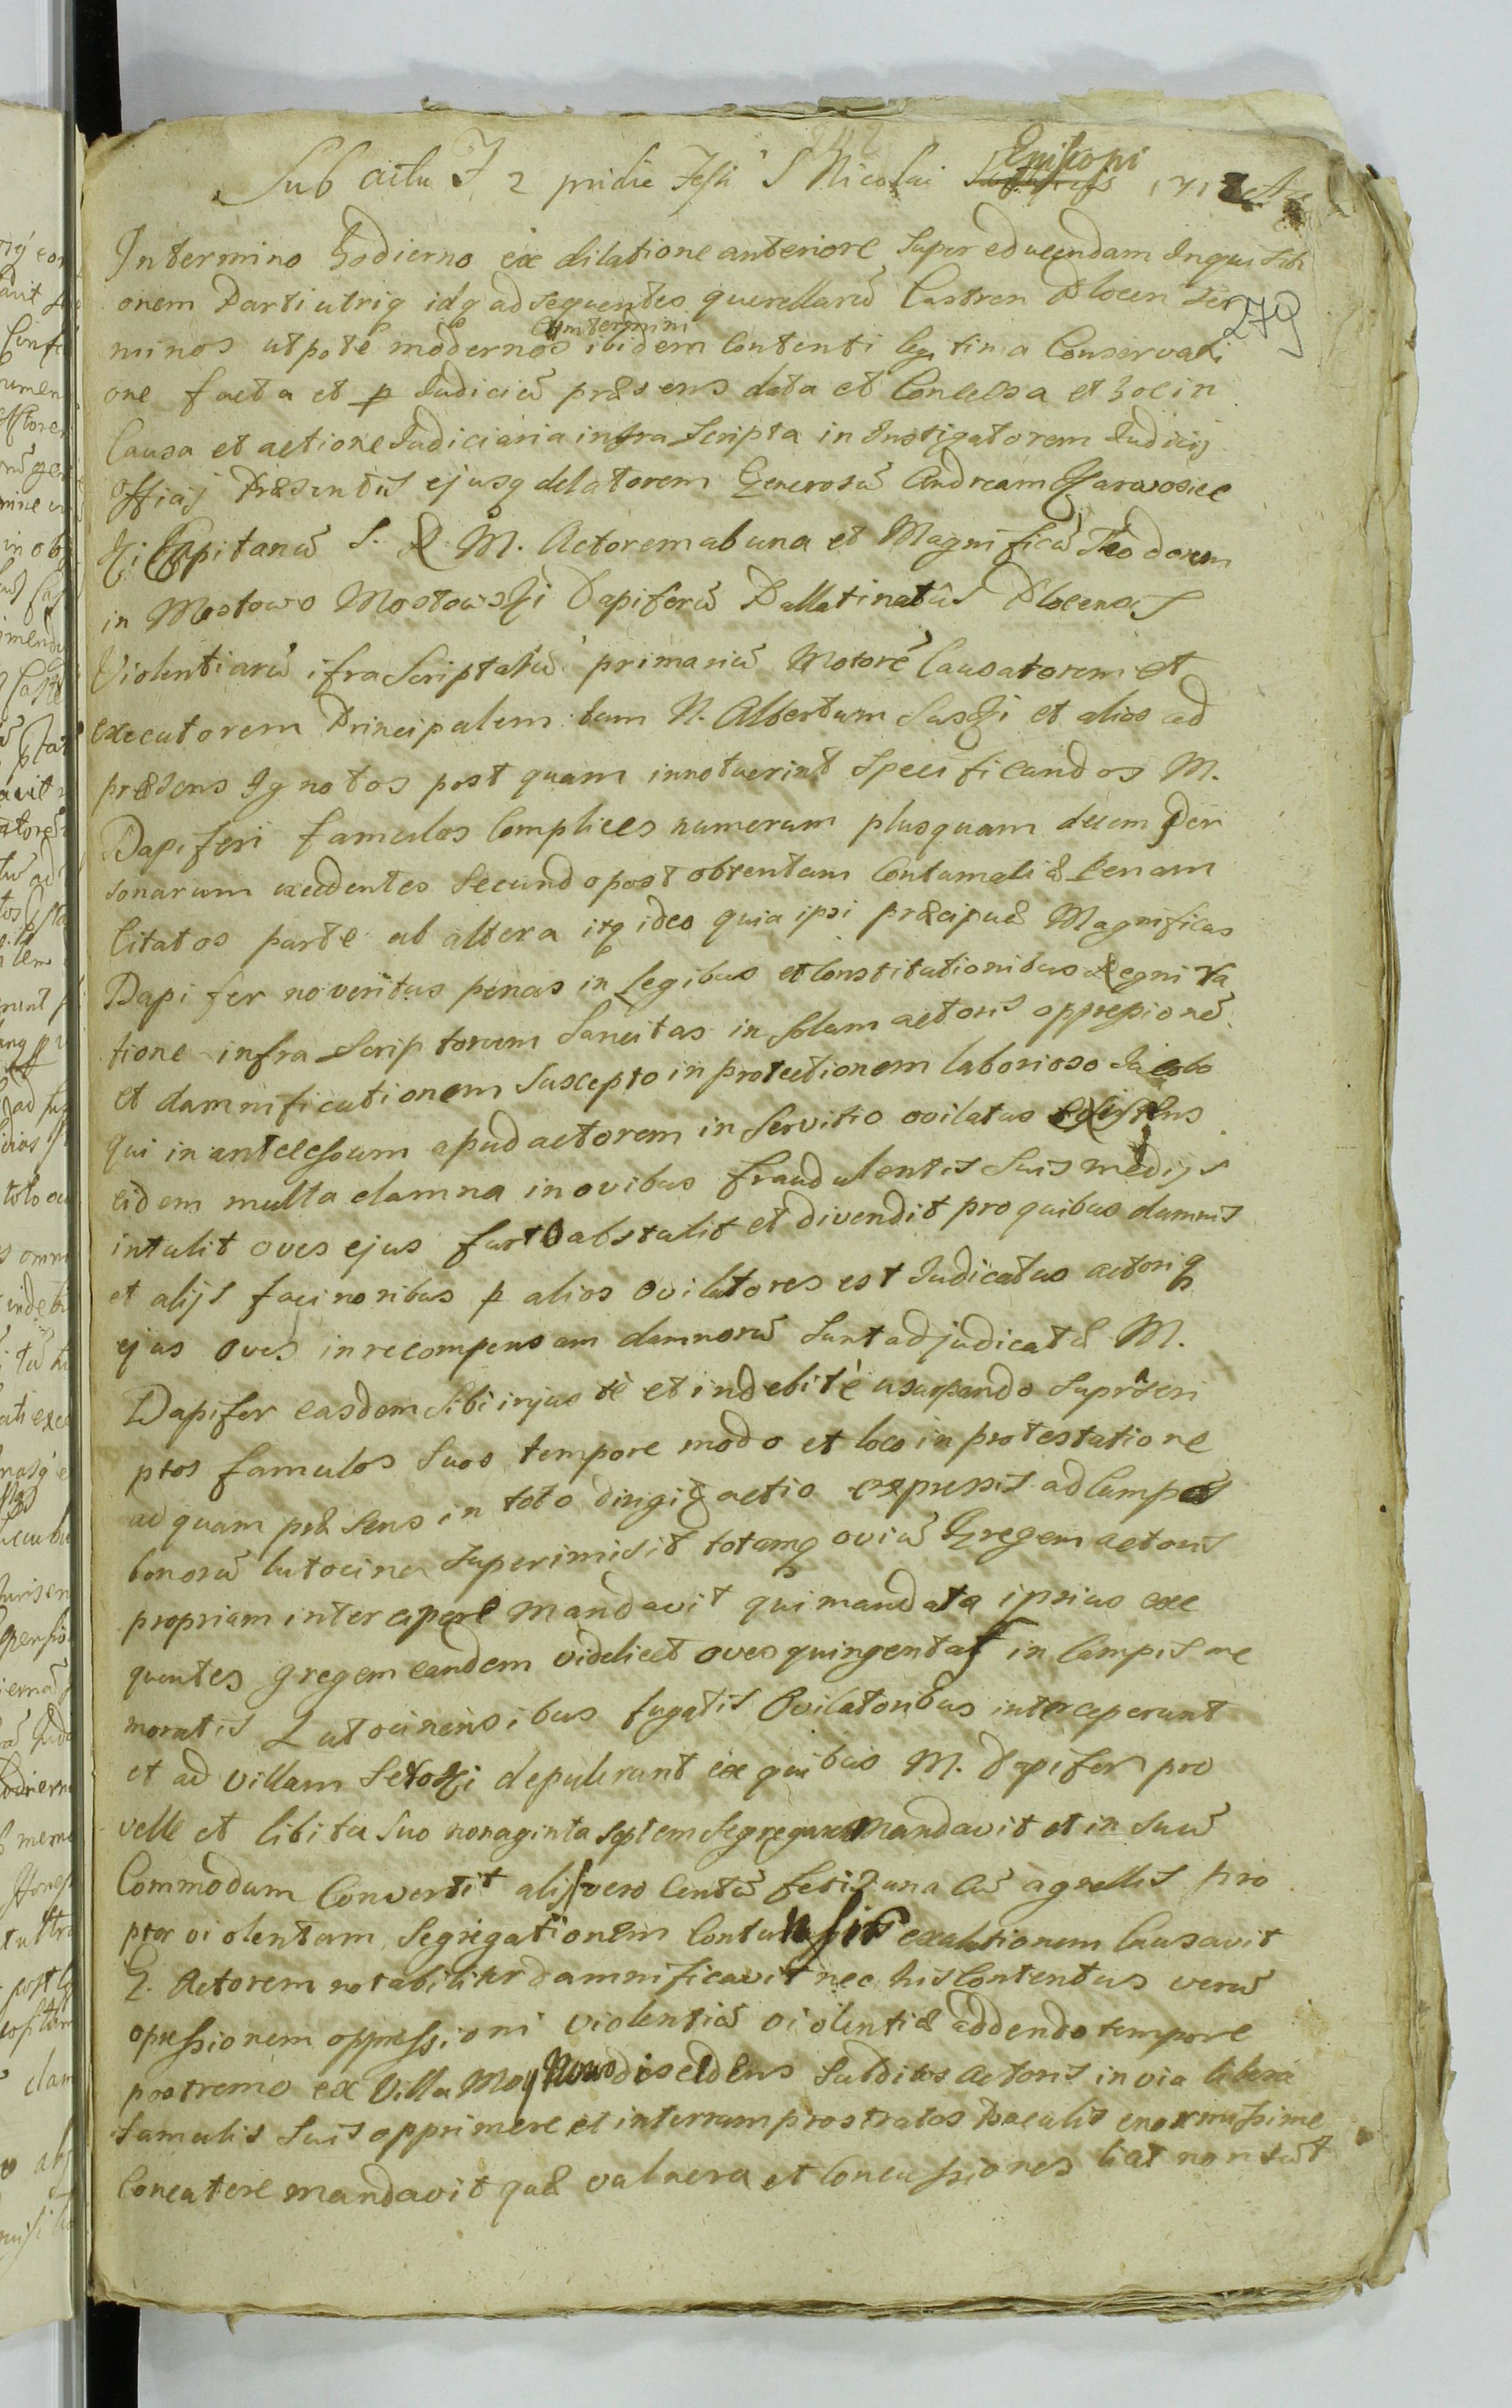 Sub actu F 2 pridie Festi S Nicolai Episcopi 171
279
In termino hodierno ex dilatione anteriore super educendam Inquisiti
onem Parti utriq idq ad sequentes querellarū Castren Plocen Ter
minos utpote modernos cum termini ibidem contenti legitima Conservati
one facta et p Judiciū præsens data et Concessa et hoc in
Causa et actione Judiciaria infra scripta in Instigatorem Judicij
officij Præsentis ejusq delatorem Generosū Andream Karwosiec
ki Capitanū S. R. M. Actorem ab una et Magnificū Theodorum
in Mostowo Mostowski Dapiferū Pallatinatûs Plocensis
Violentiarū ifra scriptarū primariū Motorē Causatorem et
executorem Principalem tum N. Albertum Suski et alios ad
præsens Ignotos post quam innotuerint specificandos M.
Dapiferi famulos Complices numerum plusquam decem Per
sonarum excedentes secundo post obtentam Contumatiæ Penam
Citatos parte ab altera itq ideo quia ipsi præcipuè Magnificus
Dapifer no veritus penas in Legibus et Constitutionibus Regni ra
tione infra scriptorum Sancitas in solam actoris oppressionē
et damnificationem suscepto in protectionem laborioso Jacobo
qui in antecessum apud actorem in servitio ovilatus existens
eidem multa damna in ovibus fraudulentis suis medijs
intulit oves ejus furto abstulit et divendit pro quibus damnis
et alijs facinoribus p alios Ovilatores est Judicatus actoriq
ejus oves in recompensam damnorū sunt adjudicatæ M.
Dapifer easdem sibi injustè et indebitè usurpando suprascri
ptos famulos suos tempore modo et loco in protestatione
ad quam præsens in toto dirigit actio expressis ad Campos
bonorū Lutocina superimisit totamq oviū Gregem actoris
propriam intercipere mandavit qui mandata ipsius exe
quentes gregem eandem videlicet oves quingentas in Campis me
moratis Lutocinensibus fugatis Ovilatoribus interceperunt
et ad villam depulerunt ex quibus M. Dapifer pro
velle et libitu suo nonaginta septem segregare mandavit et in suū
Commodum Convertit alijs vero Centū fetis una cū agnellis pro
pter violentam segregationem exaltionem Causavit
G. Actorem notabiliter damnificavit nec his Contentus verū
opressionem oppressioni violentiā violentiæ addendo tempore
postremo ex Villa discedens Subditos Actoris in via libera
famulis suis opprimere et in terram prostratos Baculis enormissime
Concutere mandavit quæ vulnera et Concussiones licet non sūt